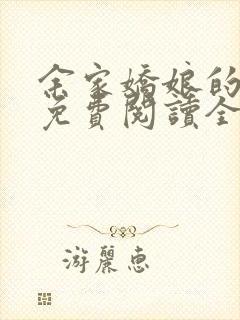 余家嬌娘的
免費閱讀全
游麗惠